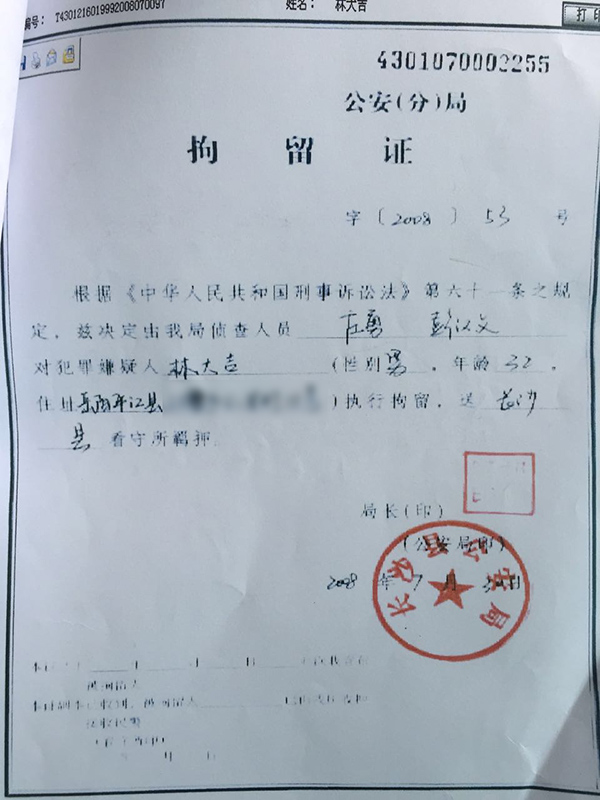 编号： T4301216019992008070097 姓名： 林大吉 打印
4301070002255
公安(分)局
拘 留 证
字〔2008〕53 号
根据《中华人民共和国刑事诉讼法》第六十一条之规
定，兹决定由我局侦查人员
对犯罪嫌疑人 林大吉 (性别 男 ，年龄 32 ，
住址 岳阳平江县 )执行拘留，送 长沙
县 看守所羁押。
局长(印)
(公安局印)
长沙县公安局
2008 年 7 月 日